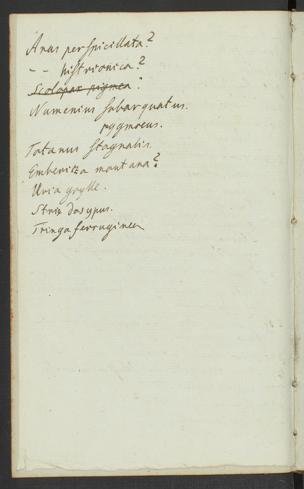 Anas perspicillata?
- - histrionica?
Scolopax pigmea?
Numenius subarquatus.
pygmaeus.
Totanus stagnalis.
Emberitza montana?
Uria grylle.
Strix dasypus.
Tringa ferruginea